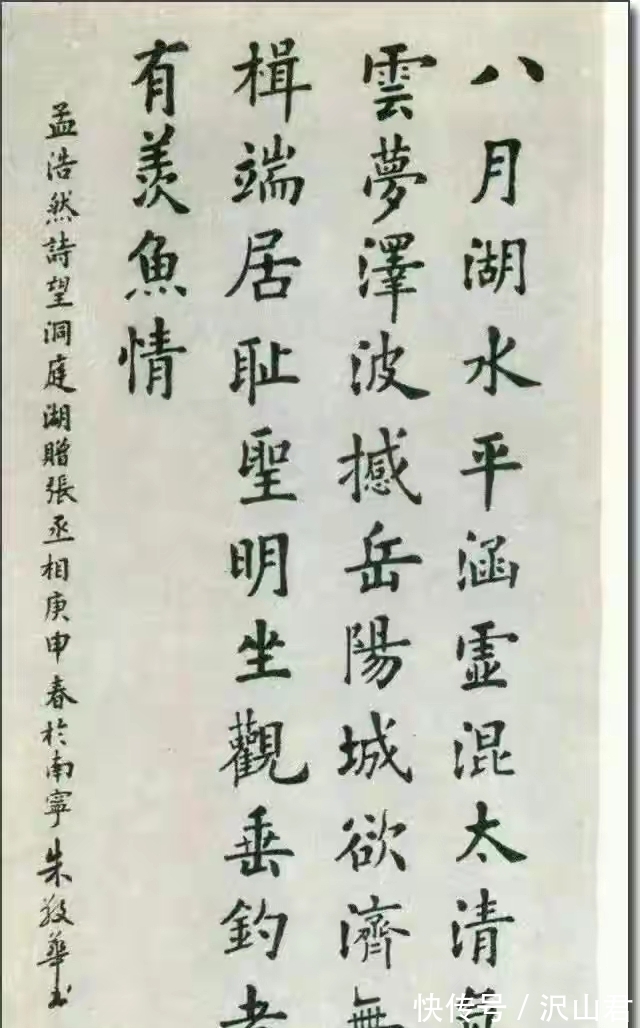 八月湖水平涵虚混太清氣
雲夢澤波撼岳陽城欲濟無
楫端居耻聖明坐觀垂釣者
有羨魚情
孟浩然詩望洞庭湖贈張丞相庚申春於南寧朱敬華书
快传号 / 沢山君